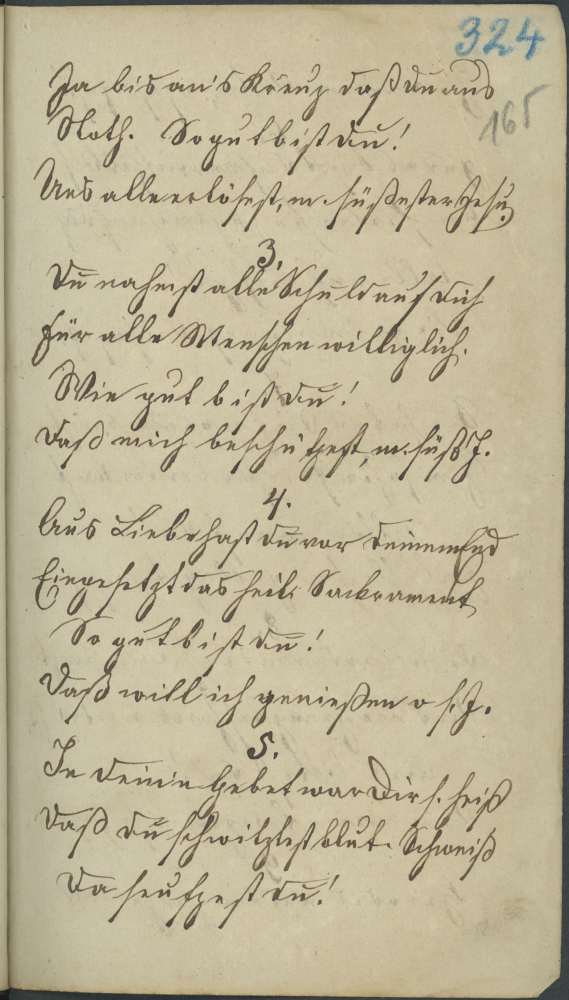 324
165
Ja bis an's Kreuz daß du aus
Noth. So gut bist du!
Uns alle erlösest, m. süßester Jesu
3.
Du nahmst alle Schuld auf dich
Für alle Menschen williglich.
Wie gut bist du!
Daß mich beschützest, m. süß J.
4.
Aus Liebe hast du vor deinem End
Eingesetzt das heil. Sackrament
So gut bist du!
Daß will ich genießen o s. J.
5.
In deinem Gebet war Dir s. heiß
Daß du schwitztest blut. Schweiß
Da seufzest du!